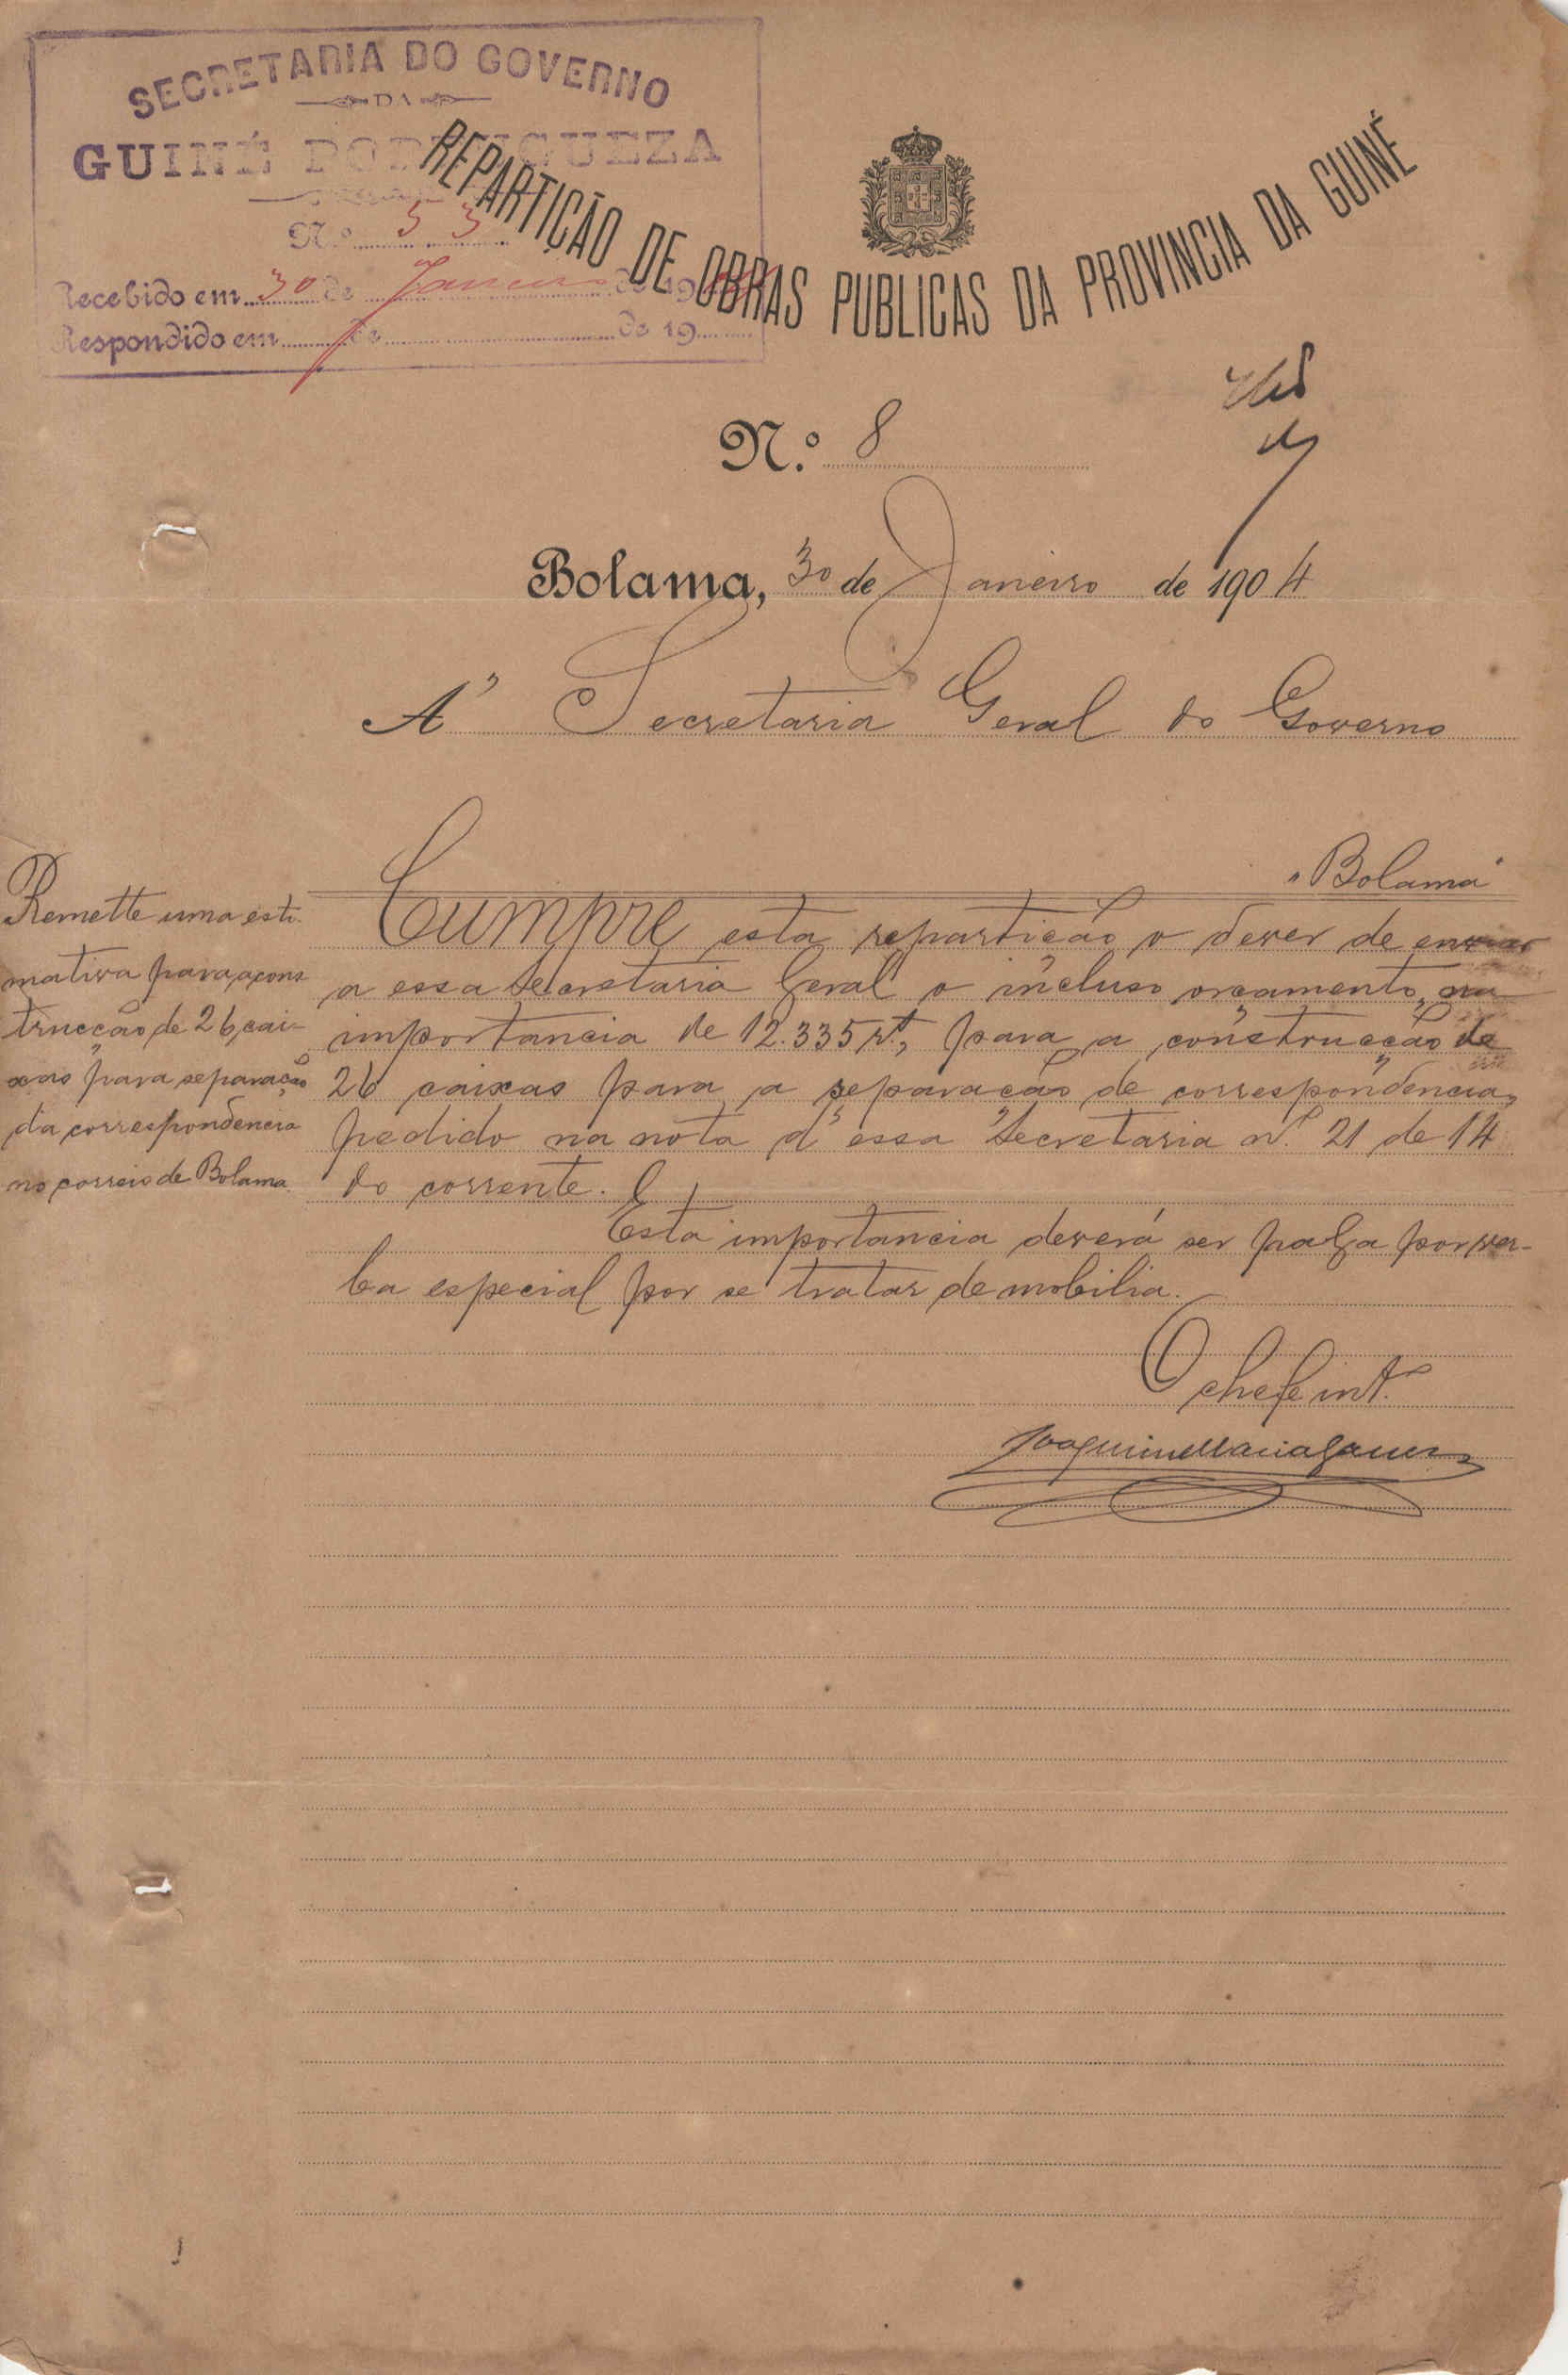 SECRETARIA DO GOVERNO
DA
GUINÉ PORTUGUEZA
N.º 53
Recebido em 30 de Janeiro de 1904
Respondido em de de 19
REPARTIÇÃO DE OBRAS PUBLICAS DA PROVINCIA DA GUINÉ
N.º 8
Bolama, 30 de Janeiro de 1904
A' Secretaria Geral do Governo
"Bolama"
Remette uma esti-
mativa para a cons
trucção de 26 cai-
xas para separação
da correspondencia
no correio de Bolama.
Cumpre esta repartição o dever de enviar
a essa Secretaria Geral o incluso orçamento, na
importancia de 12.335 rs., para a construcção de
26 caixas para a separação de correspondencia,
pedido na nota d'essa Secretaria n.º 21 de 14
do corrente.
Esta importancia deverá ser paga por ver-
ba especial por se tratar de mobilia.
O chefe int.º
Joaquim Maria